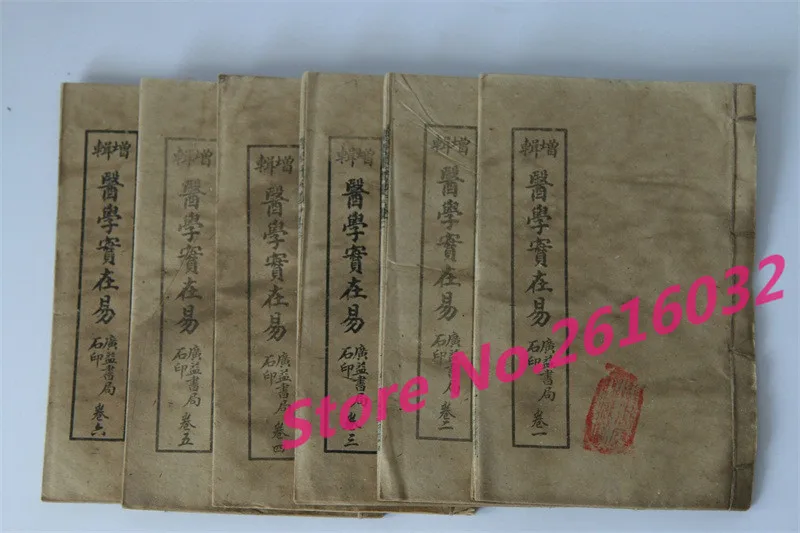 增輯
醫學實在易
廣益書局
石印
卷一
增輯
醫學實在易
廣益書局
石印
卷二
增輯
醫學實在易
廣益書局
石印
卷三
增輯
醫學實在易
廣益書局
石印
卷四
增輯
醫學實在易
廣益書局
石印
卷五
增輯
醫學實在易
廣益書局
石印
卷六
Store No.2616032